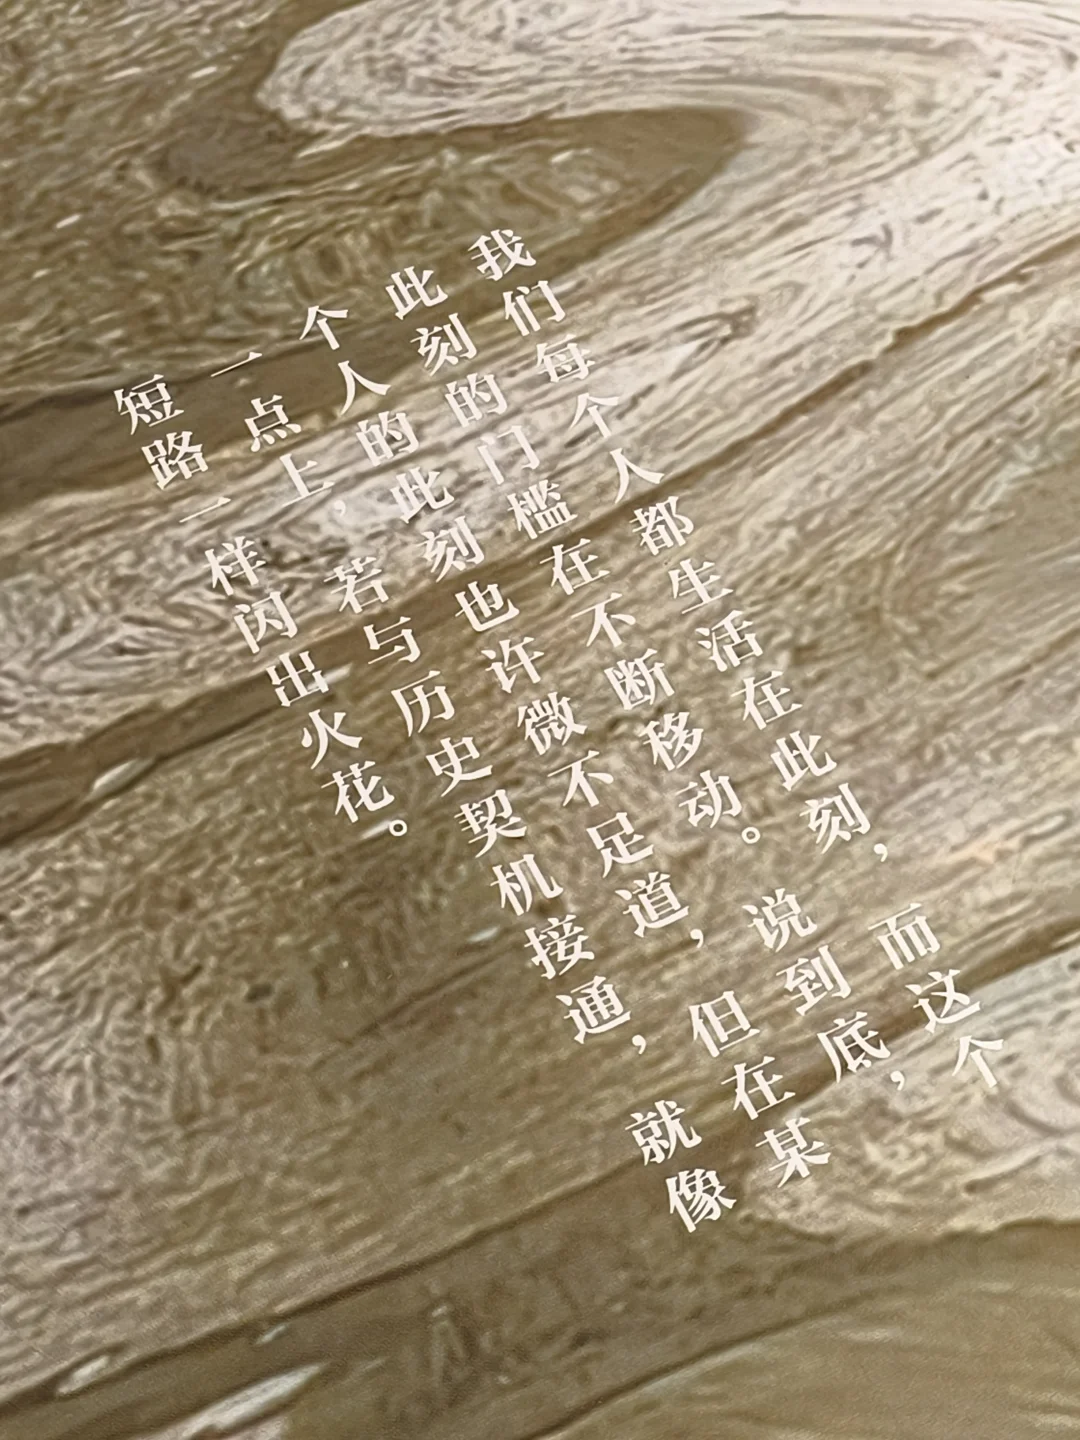 我们每个人都生活在此刻，而这个
此刻的门槛在不断移动。说到底，
个人的此刻也许微不足道，但在某
一点上，若与历史契机接通，就像
短路一样闪出火花。